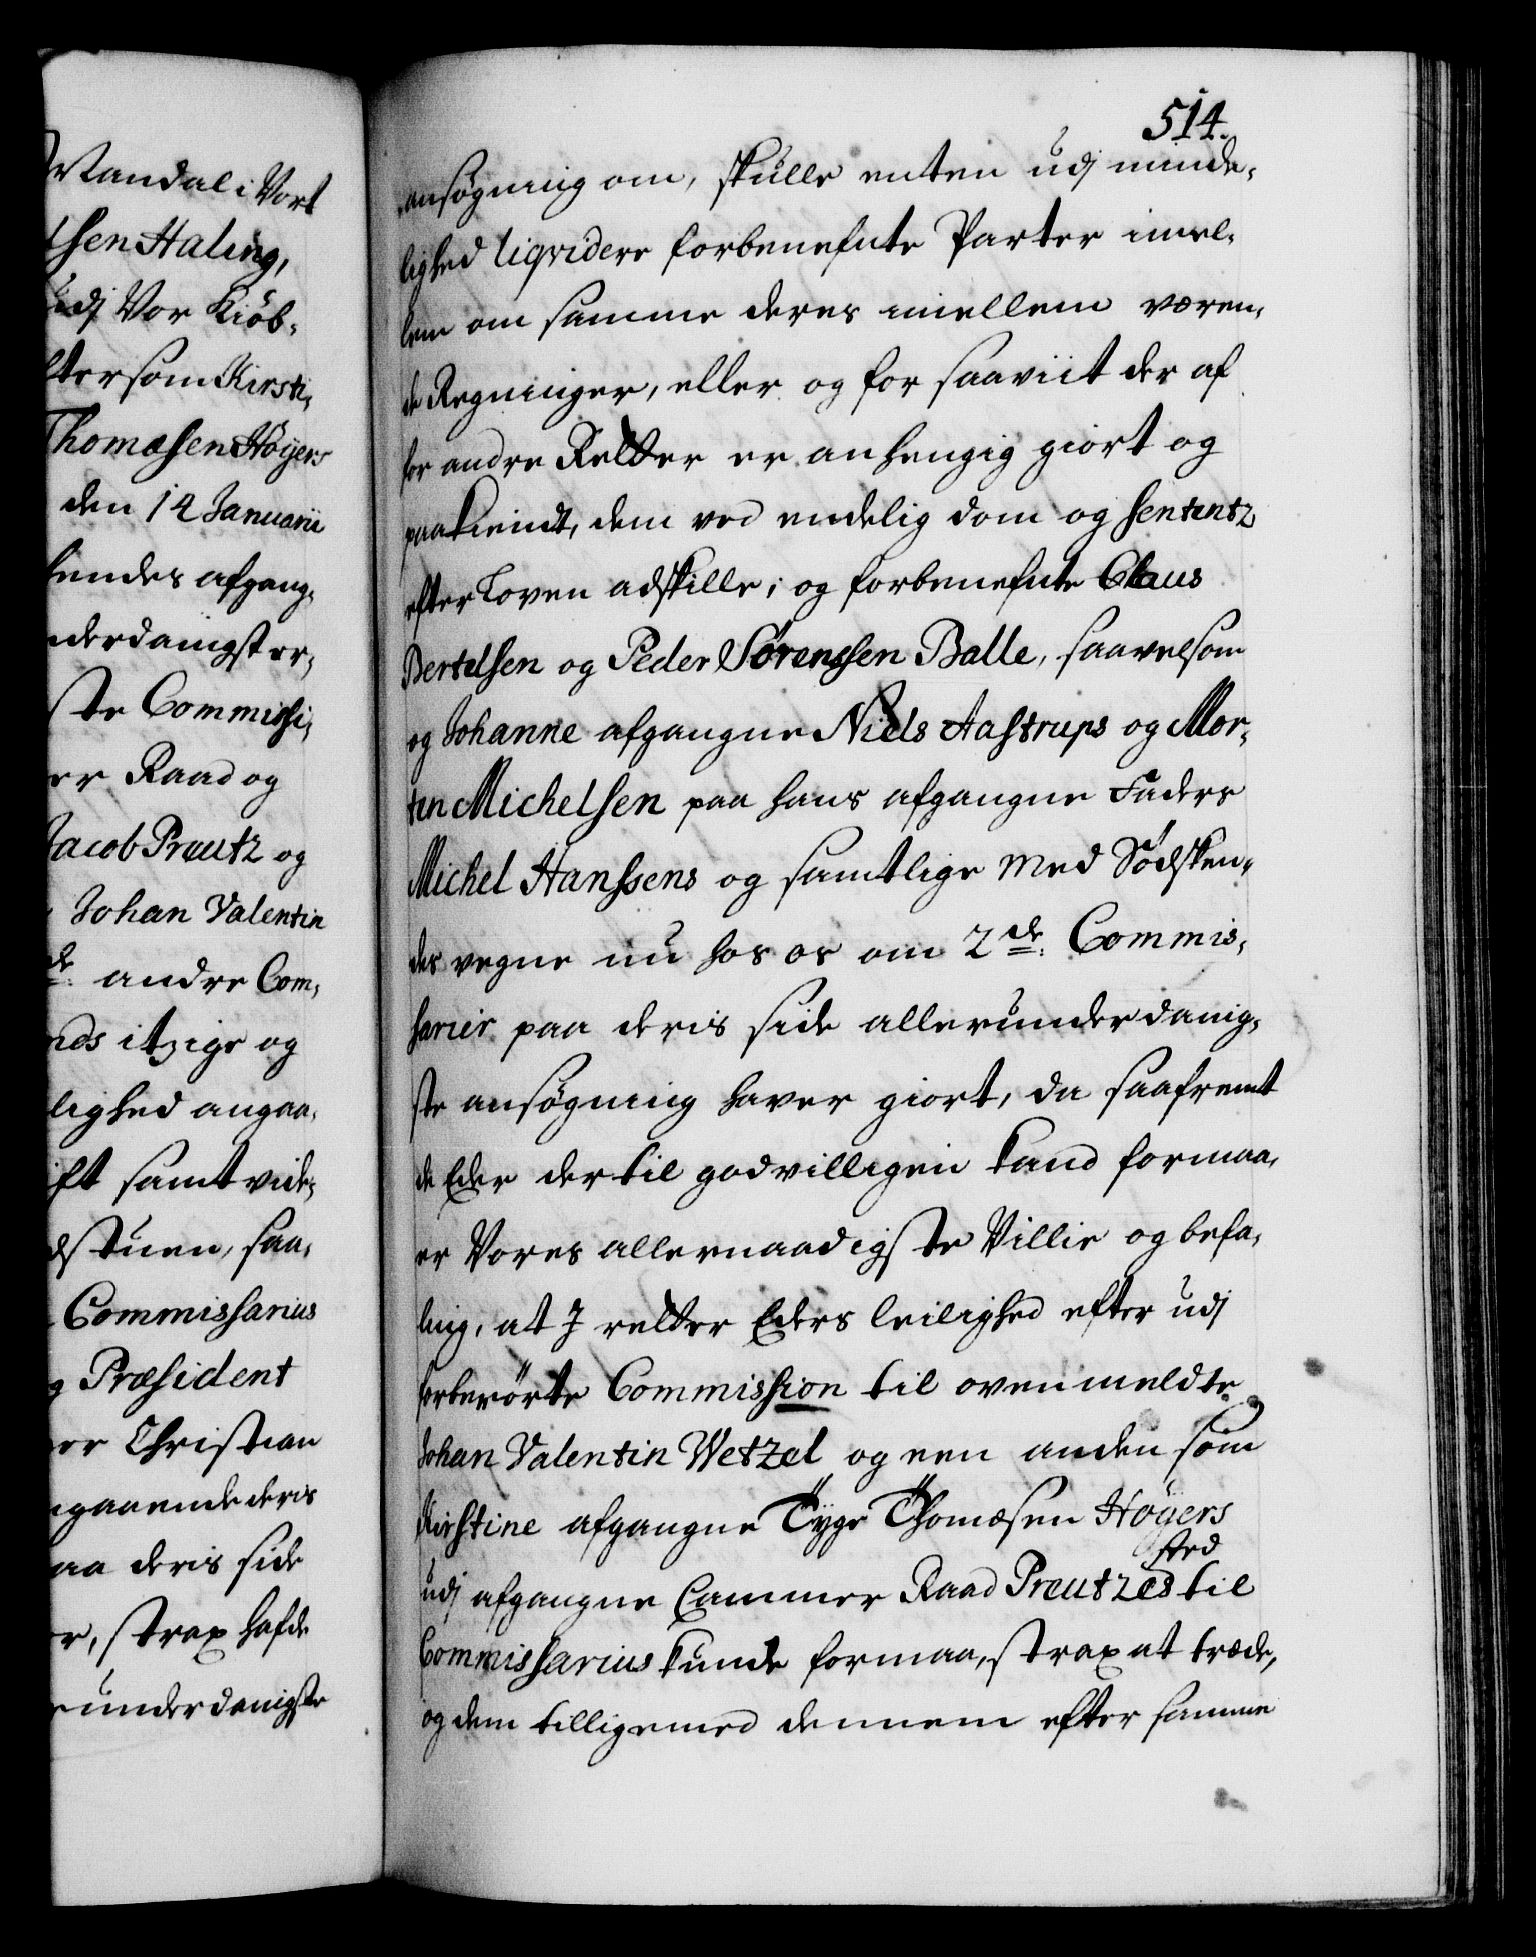 Mandal i Vort
tsen Haling,
udj Vor Kiøb-
ftersom Kirsti-
Thomæsen Höyers
den 14 Januarii
hendes afgang-
nderdanigst er-
ste Commissi-
er Raad og
Jacob Preutz og
Johan Valentin
de andre Com-
nds itzige og
lighed angaa-
ift samt vide-
dstuen, saa-
Commissarius
g Præsident
er Christian
ngaaende deris
aa deris side
r, strax hafde
runderdanigste
514.
ansøgning om, skulle enten udj minde-
lighed liqvidere forbenefnte Parter imel-
lem om samme deres imellem væren-
de Regninger, eller og for saaviit der af
for andre Retter er anhengig giort og
paakiendt, dem ved endelig dom og sententz
efter Loven adskille; og forbenefnte Claus
Bertelsen og Peder Sørenssen Balle, saavelsom
og Johanne afgangne Niels Aastrups og Mor-
ten Michelsen paa hans afgangne Faders
Michel Hanssens og samtlige Med Södsken-
des vegne nu hos os om 2de Commis-
sarier paa deris side allerunderdanig-
ste ansøgning haver giort, da saafremt
de Eder dertil godvilligen kand formaa,
er Vores allernaadigste Villie og befa-
ling, at I retter Eders leilighed efter udj
forberörte Commission til ovenmeldte
Johan Valentin Wetzel og een anden som
Kirstine afgangne Tyge Thomæsen Höyers
udj afgangne Cammer Raad Preutzes sted til
Commissarius kunde formaa, strax at træde,
og dem tilligemed dennem efter samme